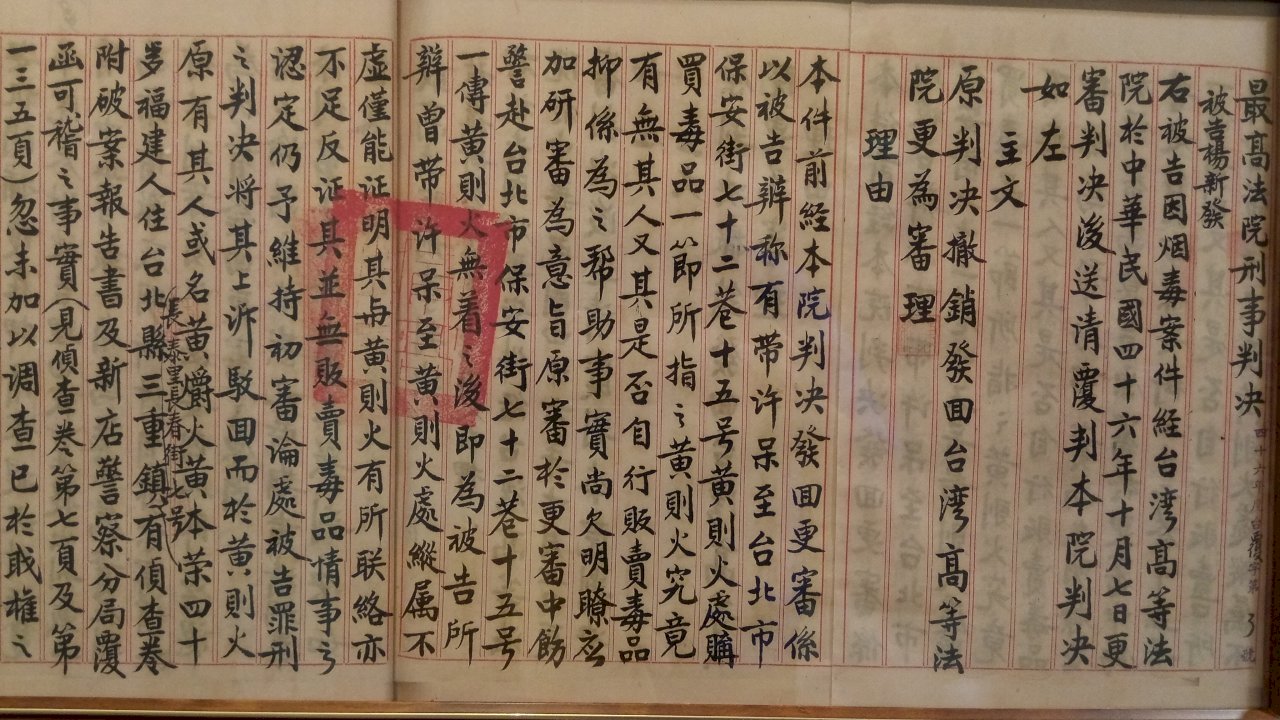 最高法院刑事判决
被告楊新發
右被告因烟毒案件経台湾高等法
院於中華民國四十六年十月七日更
審判决後送請覆判本院判决
如左
主文
原判决撤銷發囬台湾高等法
院更為審理
理由
本件前経本院判决發囬更審係
以被告辯称有带许呆至台北市
保安街七十二巷十五号黄則火處購
買毒品一節所指之黄則火究竟
有無其人又其是否自行販賣毒品
抑係為之帮助事實尚欠明瞭应
加研審為意旨原審於更審中飭
警赴台北市保安街七十二巷十五号
一傳黄則火無着之後即為被告所
辯曾带许呆至黄則火處縱属不
虚僅能证明其与黄則火有所联絡亦
不足反证其並無販賣毒品情事之
認定仍予維持初審論處被告罪刑
之判决将其上泝駁囬而於黄則火
原有其人或名黄爵火黄本荣四十
岁福建人住台北縣三重鎮有偵查卷
長泰里長春街七号
附破案報告書及新店警察分局覆
函可稽之事實(見偵查卷第七頁及第
一三五頁)忽未加以调查已於戝權之